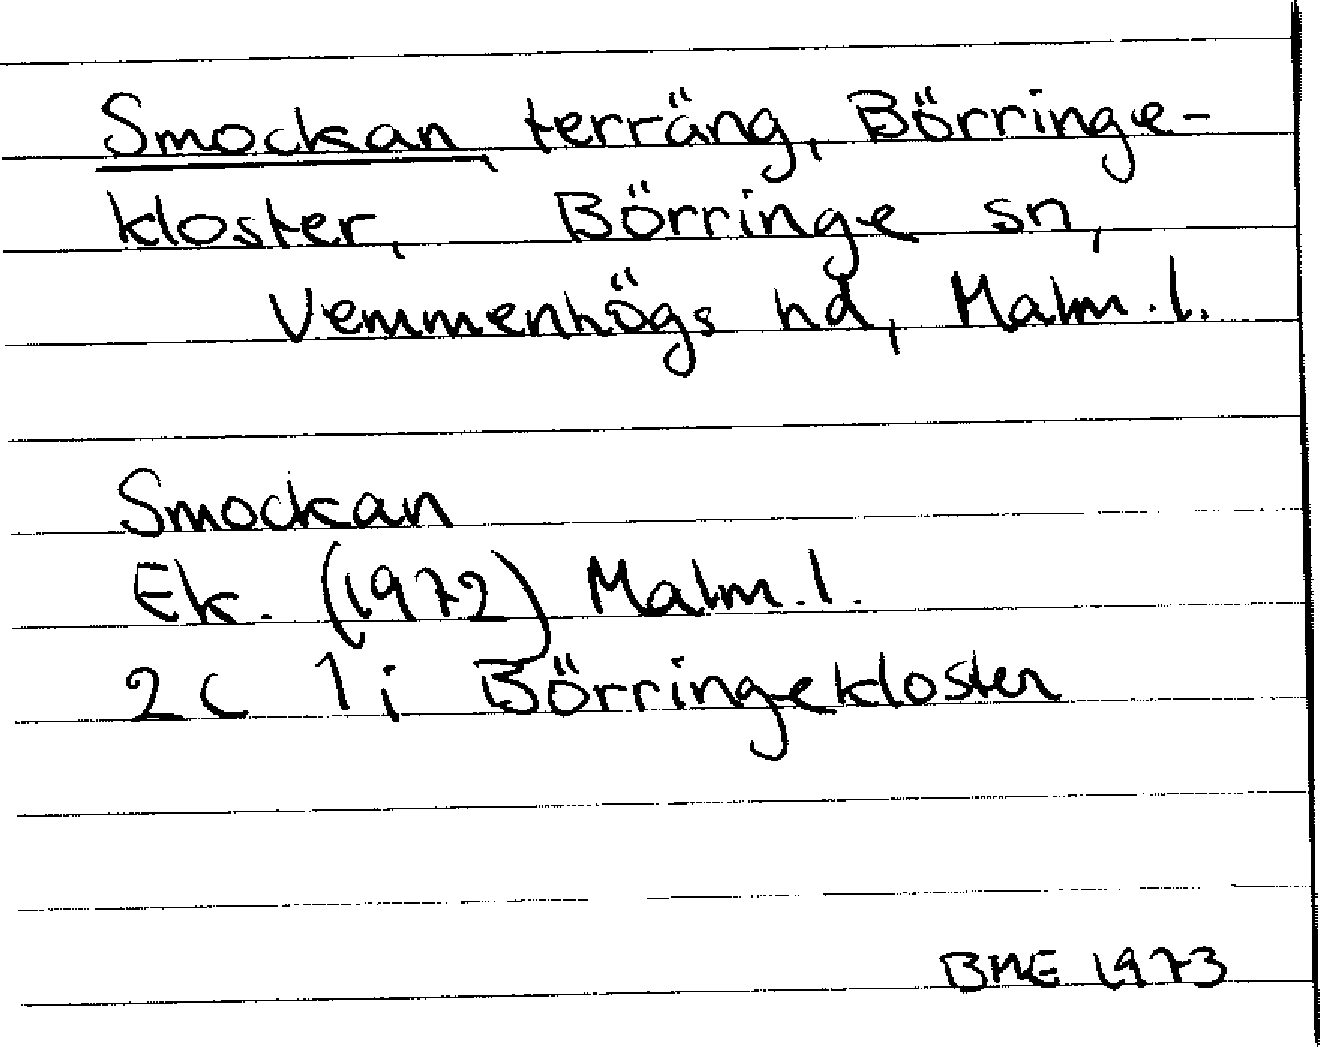 Smockan, terräng, Börringe-
kloster, Börringe sn,
Vemmenhögs hd, Malm. l.
Smockan
Ek. (1972) Malm. l.
2 c 1 i Börringekloster
BME 1973